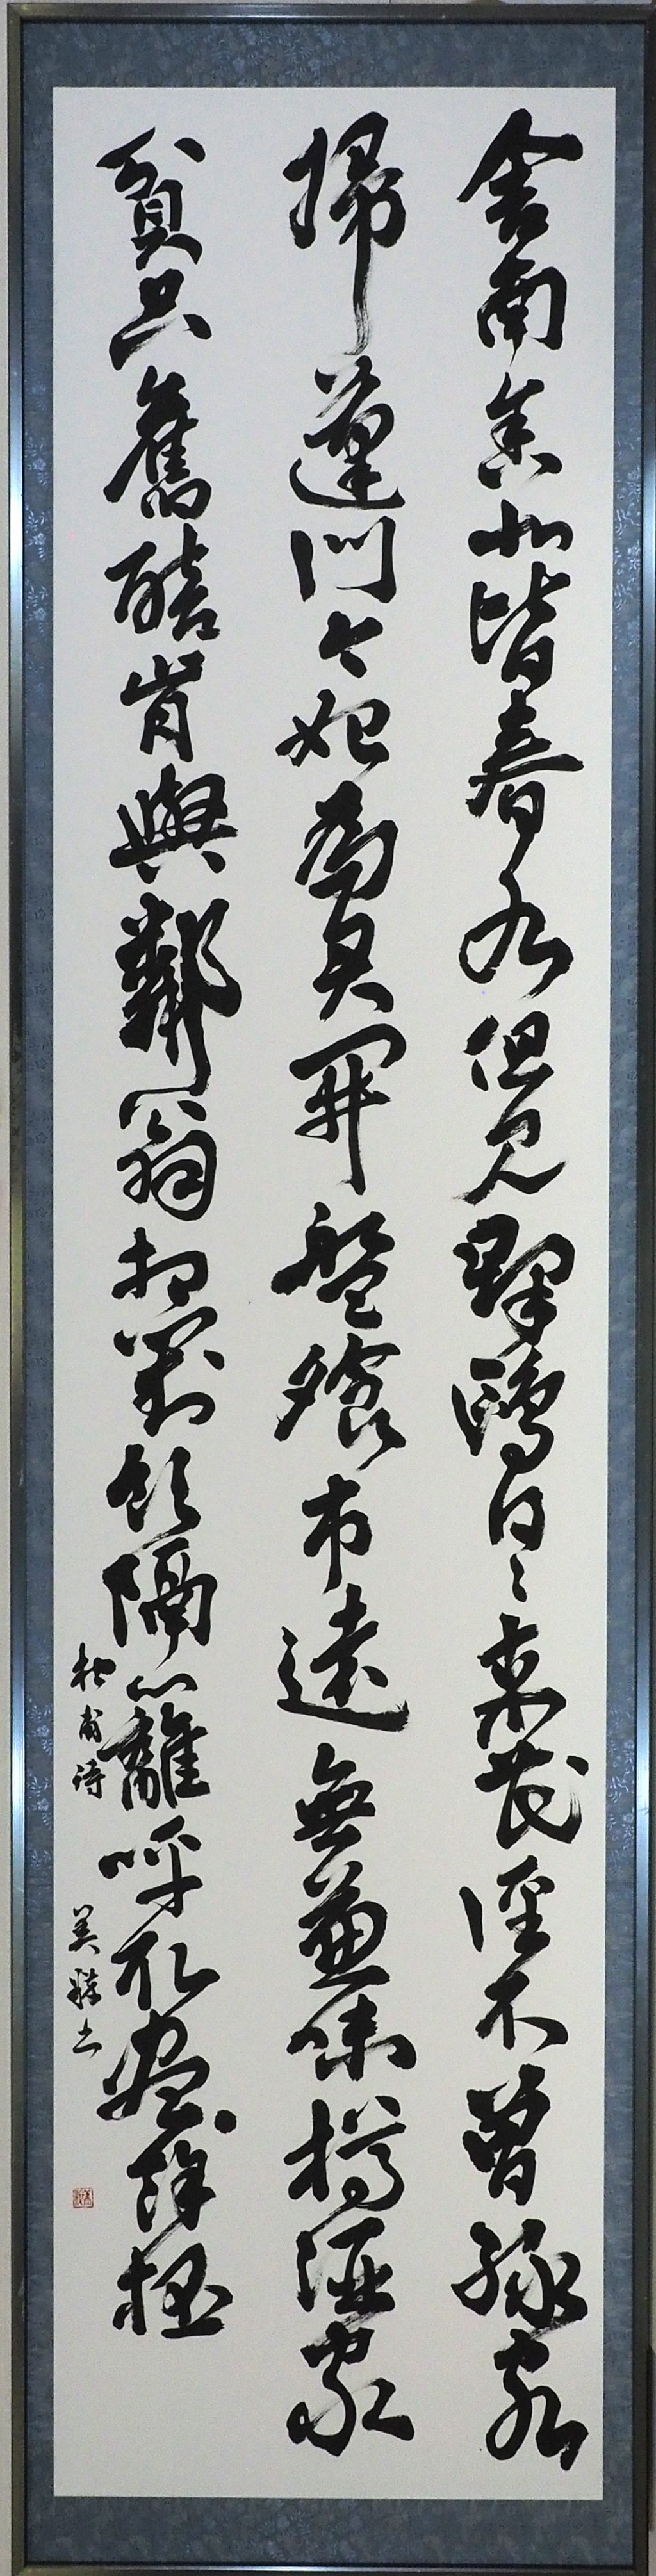 舍南舍北皆春水但見羣鷗日々来花徑不曾縁客
掃蓬門今始為君開盤飧市遠無兼味樽酒家
貧只舊醅肯與鄰翁相對飲隔籬呼取盡餘杯
杜甫詩